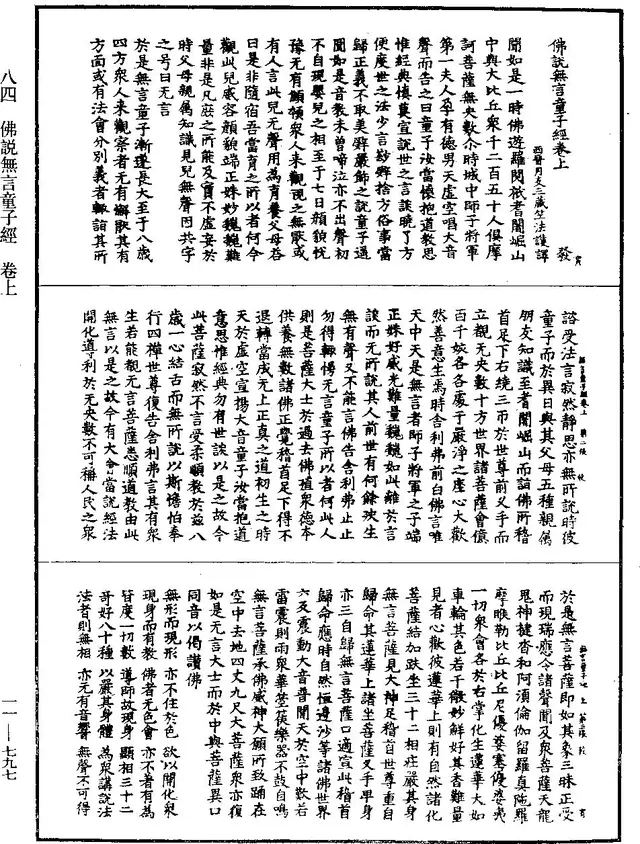 佛說無言童子經卷上
西晉月支三藏竺法護譯 發
聞如是一時佛遊羅閱祇耆闍崛山
中與大比丘衆千二百五十人俱摩
訶菩薩無央數介時城中師子將軍
第一夫人孕有德男天虛空唱大音
聲而告之曰童子汝當懷抱道教思
惟經典慎莫宣說世之言談曉了方
便度世之法少言 捨方俗事當
歸正義不取美辭嚴飾之說童子適
聞如是音教未曾啼泣亦不出聲初
不自現嬰兒之相至于七日顏貌悅
豫无有顦顇衆人來觀視之無猒或
有人言此兒无聲用為育養父母荅
曰是非隨宿吾當育之所以者何今
觀此兒威容顏貌端正姝妙巍巍難
量非是凡庶之所能及實不虛妄於
時父母親屬知識見兒無聲因共字
之号曰无言
於是無言童子漸遂長大至于八歲
四方衆人来觀察者无有懈猒其有
方面或有法會分別義者輒詣其所
諮受法言寂然靜思亦無所說時彼
童子而於異日與其父母五種親屬
朋友知識至耆闍崛山而詣佛所稽
首足下右繞三帀於世尊前叉手而
立觀无央數十方世界諸菩薩會億
百千姟各各處于嚴淨之座心大歡
然善意生焉時舍利弗前白佛言唯
天中天是無言者師子將軍之子端
正姝好威光難量巍巍如此難於言
談而无所說其人前世有何餘殃生
無有聲又不能言佛告舍利弗止止
勿得輒㑥无言童子所以者何此人
則是菩薩大士於過去佛殖衆德本
供養無數諸佛正覺稽首足下得不
退轉當成无上正真之道初生之時
天於虛空宣揚大音童子汝當抱道
意思惟經典勿有世談以是之故今
此菩薩寂然不言受柔順教於茲八
歲一心結舌而無所說以斯憺怕奉
行四禪世尊復告舍利弗言其有衆
生若能觀无言菩薩悉順道教由此
無言以是之故今有大會當說經法
開化導利於无央數不可稱人民之衆
於是無言菩薩即如其象三昧正受
而現瑞應令諸聲聞及衆菩薩天龍
鬼神揵沓和阿須倫伽留羅真陁羅
摩睺勒比丘比丘尼優婆塞優婆夷
一切衆會各於右掌化生蓮華大如
車輪其色若干微妙鮮好其香難量
見者心歡彼蓮華上則有自然諸化
菩薩結加趺坐三十二相莊嚴其身
無言菩薩見大神足稽首世尊重自
歸命其蓮華上諸坐菩薩叉手畢身
亦三自歸無言菩薩口適宣此稽首
歸命應時自然恒邊沙等諸佛世界
六反震動大音普聞天於空中歎若
雷震則雨衆華箜篌樂器不鼓自鳴
無言菩薩承佛威神大願所致踊在
空中去地四丈九尺大菩薩衆亦復
如是无言大士而於中與菩薩異口
同音以偈讚佛
無形而現形 亦不住於色 欲以開化衆
現身而有教 佛者无色會 亦不著有為
皆度一切數 導師故現身 顯相三十二
奇好八十種 以嚴其身體 為衆講說法
法者則無相 亦无有音聲 無聲不可得
八四 佛說無言童子經 卷上
一一—七九七